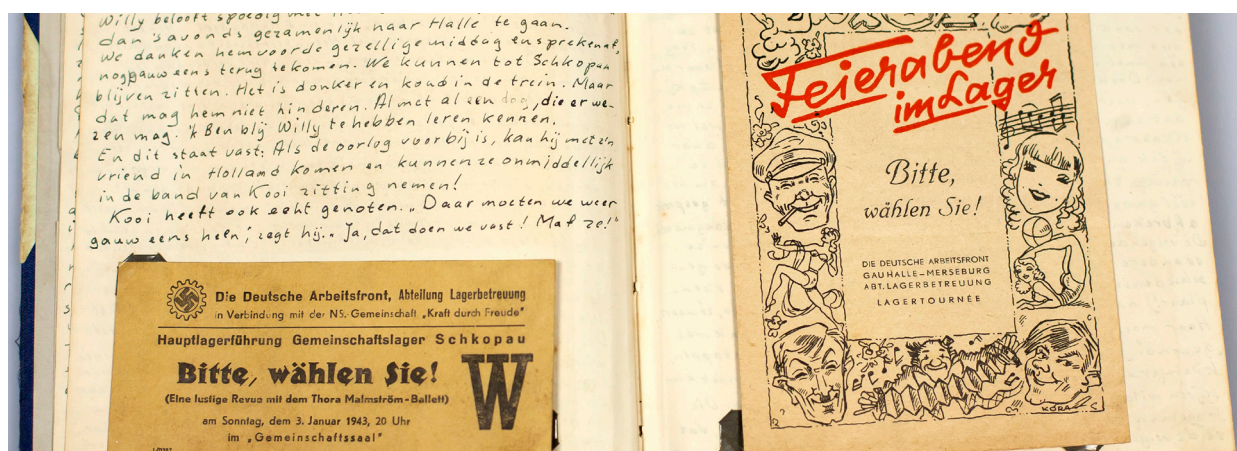 Willy belooft spoedig met
dan 's avonds gezamenlijk naar Halle te gaan.
We danken hem voor de gezellige middag en spreken af,
nog gauw eens terug te komen. We kunnen tot Schkopau
blijven zitten. Het is donker en koud in de trein. Maar
dat mag hem niet hinderen. Al met al een dag, die er we-
zen mag. 'k Ben blij Willy te hebben leren kennen.
En dit staat vast: Als de oorlog voorbij is, kan hij met z'n
vriend in Holland komen en kunnen ze onmiddellijk
in de band van Kooi zitting nemen!
Kooi heeft ook echt genoten. „Daar moeten we weer
gauw eens heen", zegt hij. „Ja, dat doen we vast! Maf ze!"
Die Deutsche Arbeitsfront, Abteilung Lagerbetreuung
in Verbindung mit der NS.-Gemeinschaft „Kraft durch Freude"
Hauptlagerführung Gemeinschaftslager Schkopau
Bitte, wählen Sie!
W
(Eine lustige Revue mit dem Thora Malmström-Ballett)
am Sonntag, dem 3. Januar 1943, 20 Uhr
im „Gemeinschaftssaal"
Feierabend
im Lager
Bitte,
wählen Sie!
DIE DEUTSCHE ARBEITSFRONT
GAU HALLE-MERSEBURG
ABT. LAGERBETREUUNG
LAGERTOURNÉE
KÖRA